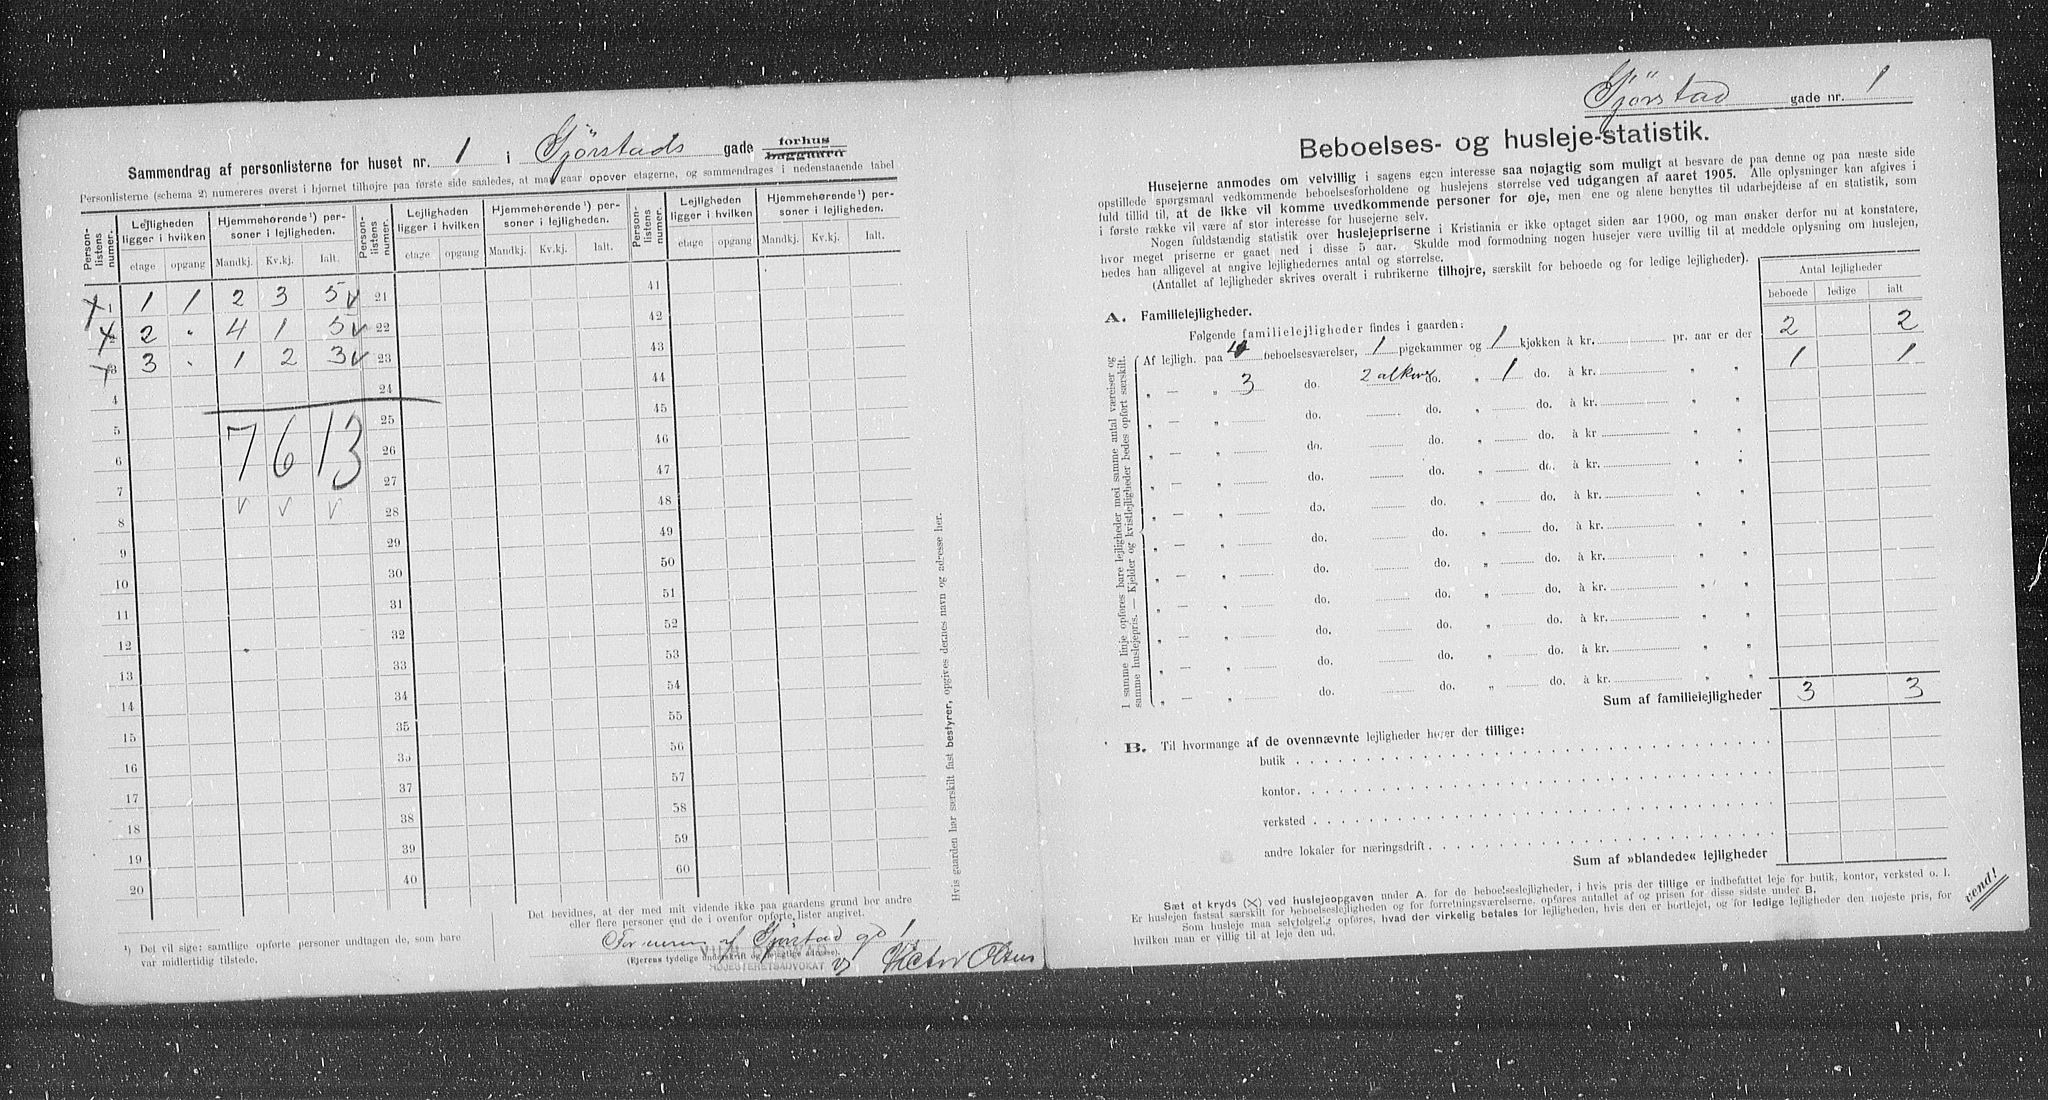 Sammendrag af personlisterne for huset nr. 1 i Gjörstads gade forhus baggaard
Personlisterne (schema 2) numereres øverst i hjørnet tilhøjre paa første side saaledes, at man gaar opover etagerne, og sammendrages i nedenstaaende tabel
Person-listens numer. Lejligheden ligger i hvilken Hjemmehørende¹) personer i lejligheden. Person-listens numer. Lejligheden ligger i hvilken Hjemmehørende¹) personer i lejligheden. Person-listens numer. Lejligheden ligger i hvilken Hjemmehørende¹) personer i lejligheden.
etage opgang Mandkj. Kv.kj. Ialt. etage opgang Mandkj. Kv.kj. Ialt. etage opgang Mandkj. Kv.kj. Ialt.
1 1 1 2 3 5 21 41
2 2 " 4 1 5 22 42
3 3 " 1 2 3 23 43
4 24 44
5 7 6 13 25 45
6 26 46
7 27 47
8 28 48
9 29 49
10 30 50
11 31 51
12 32 52
13 33 53
14 34 54
15 35 55
16 36 56
17 37 57
18 38 58
19 39 59
20 40 60
¹) Det vil sige: samtlige opførte personer undtagen de, som bare
var midlertidig tilstede.
Det bevidnes, at der med mit vidende ikke paa gaardens grund bor andre
eller flere personer end de i ovenfor opførte lister angivet.
af Gjörstad gd 1
(Ejerens tydelige underskrift og nøjagtige adresse).
HØJESTERETSADVOKAT
Victor Olsen
Hvis gaarden har særskilt fast bestyrer, opgives dennes navn og adresse her.
Gjörstad gade nr. 1
Beboelses- og husleje-statistik.
Husejerne anmodes om velvillig i sagens egen interesse saa nøjagtig som muligt at besvare de paa denne og paa næste side
opstillede spørgsmaal vedkommende beboelsesforholdene og huslejens størrelse ved udgangen af aaret 1905. Alle oplysninger kan afgives i
fuld tillid til, at de ikke vil komme uvedkommende personer for øje, men ene og alene benyttes til udarbejdelse af en statistik, som
i første række vil være af stor interesse for husejerne selv.
Nogen fuldstændig statistik over huslejepriserne i Kristiania er ikke optaget siden aar 1900, og man ønsker derfor nu at konstatere,
hvor meget priserne er gaaet ned i disse 5 aar. Skulde mod formodning nogen husejer være uvillig til at meddele oplysning om huslejen,
bedes han alligevel at angive lejlighedernes antal og størrelse.
(Antallet af lejligheder skrives overalt i rubrikerne tilhøjre, særskilt for beboede og for ledige lejligheder).
Antal lejligheder
beboede ledige ialt
A. Familielejligheder.
Følgende familielejligheder findes i gaarden:
Af lejligh. paa 4 beboelsesværelser, 1 pigekammer og 1 kjøkken à kr. pr. aar er der 2 2
" — " 3 do. 2 do. " 1 do. à kr. " " 1 1
" — " do. do. " do. à kr. " "
" — " do. do. " do. à kr. " "
" — " do. do. " do. à kr. " "
" — " do. do. " do. à kr. " "
" — " do. do. " do. à kr. " "
" — " do. do. " do. à kr. " "
" — " do. do. " do. à kr. " "
" — " do. do. " do. à kr. " "
" — " do. do. " do. à kr. " "
" — " do. do. " do. à kr. " "
I samme linje opføres bare lejligheder med samme antal værelser og
samme huslejepris. — Kjelder og kvistlejligheder bedes opført særskilt.
Sum af familielejligheder 3 3
B. Til hvormange af de ovennævnte lejligheder hører der tillige:
butik
kontor
verksted
andre lokaler for næringsdrift
Sum af »blandede« lejligheder
Sæt et kryds (X) ved huslejeopgaven under A. for de beboelseslejligheder, i hvis pris der tillige er indbefattet leje for butik, kontor, verksted o. l.
Er huslejen fastsat særskilt for beboelseslejligheden og for forretningsværelserne, opføres antallet af og prisen for disse sidste under B.
Som husleje maa selvfølgelig opføres, hvad der virkelig betales for lejligheden, hvis den er bortlejet, og for ledige lejligheder den højeste pris, for
hvilken man er villig til at leje den ud.
vend!